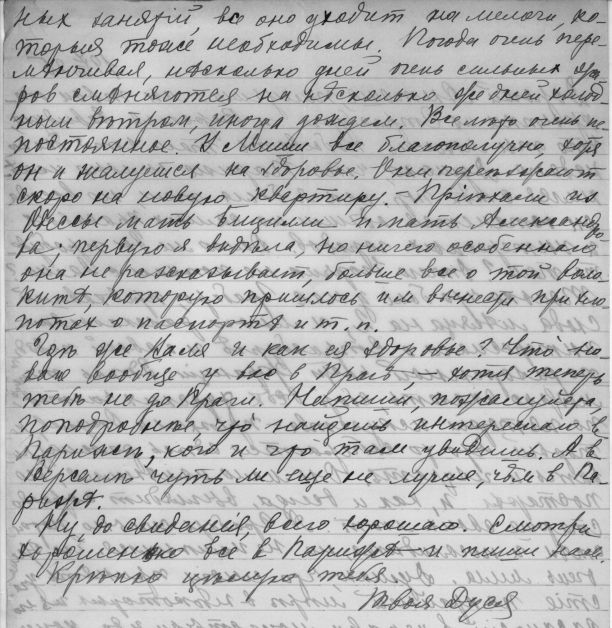 ных занятій, все оно уходит на мелочи, ко-
торыя тоже необходимы. Погода очень пере-
мѣнчивая, нѣсколько дней очень сильных жа
ров смѣняются на нѣсколько же дней холод
ным вѣтром, иногда дождем. Все лѣто очень не
постоянное. У Миши все благополучно, хотя
он и жалуется на здоровье. Они переѣзжают
скоро на новую квартиру. – Пріѣхали из
Одессы мать Бицилли и мать Александро
ва; первую я видѣла, но ничего особеннаго
она не разсказывает, больше все о той воло
китѣ, которую пришлось им вынести при хло
потах о паспортѣ и т. п.
Гдѣ же Валя и как ея здоровье? Что но
ваго вообще у вас в Прагѣ, – хотя теперь
тебѣ не до Праги. Напиши, пожалуйста,
поподробнѣе, что найдешь интереснаго в
Парижѣ, кого и что там увидишь. А в
Версалѣ чуть ли еще не лучше, чѣм в Па-
рижѣ.
Ну, до свиданія, всего хорошаго. Смотри
хорошенько все в Парижѣ и пиши нам.
Крѣпко цѣлую тебя
Твоя Дуся